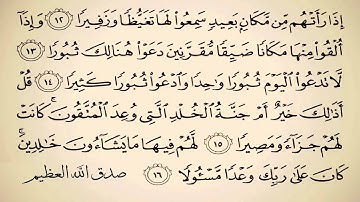 إِذَا رَأَتْهُم مِّن مَّكَانٍ بَعِيدٍ سَمِعُوا۟ لَهَا تَغَيُّظًا وَزَفِيرًا ١٢ وَإِذَآ
أُلْقُوا۟ مِنْهَا مَكَانًا ضَيِّقًا مُّقَرَّنِينَ دَعَوْا۟ هُنَالِكَ ثُبُورًا ١٣
لَّا تَدْعُوا۟ ٱلْيَوْمَ ثُبُورًا وَٰحِدًا وَٱدْعُوا۟ ثُبُورًا كَثِيرًا ١٤ قُلْ
أَذَٰلِكَ خَيْرٌ أَمْ جَنَّةُ ٱلْخُلْدِ ٱلَّتِى وُعِدَ ٱلْمُتَّقُونَ ۚ كَانَتْ
لَهُمْ جَزَآءً وَمَصِيرًا ١٥ لَّهُمْ فِيهَا مَا يَشَآءُونَ خَٰلِدِينَ ۚ
كَانَ عَلَىٰ رَبِّكَ وَعْدًا مَّسْـُٔولًا ١٦ صدق الله العظيم